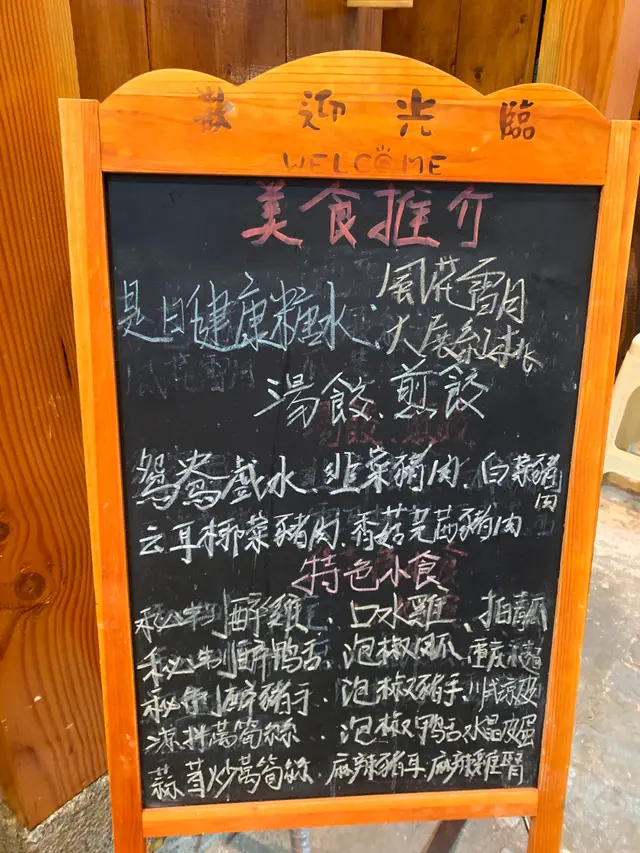 歡迎光臨
WELCOME
美食推介
是日健康糖水：風花雪月
大展
湯餃、煎餃
鴛鴦戲水、韭菜豬肉、白菜豬肉
云耳椰菜豬肉、香菇芫茜豬肉
特色小食
秘制醉雞、口水雞、拍青瓜
秘制醉鴨舌、泡椒鳳爪、重慶
秘制醉豬手、泡椒豬手、川式涼皮
涼拌萵筍絲、泡椒鴨舌、水晶皮蛋
蒜茸炒萵筍絲、麻辣豬耳、麻辣雞腎